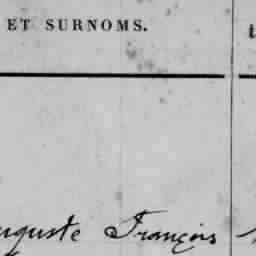 ET SURNOMS.
uguste François